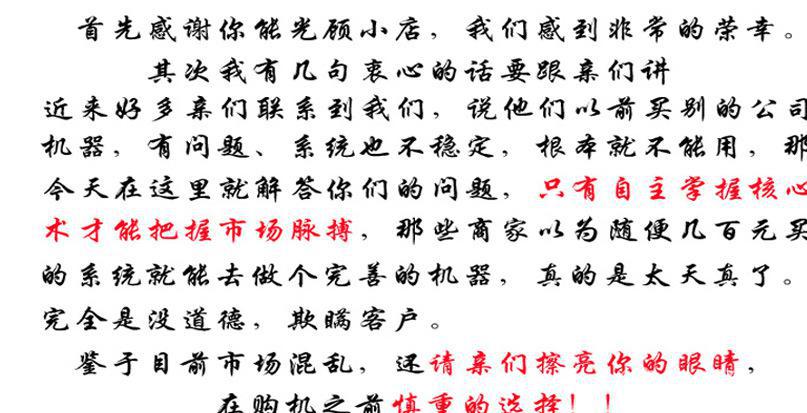 首先感谢你能光顾小店，我们感到非常的荣幸。
其次我有几句衷心的话要跟亲们讲
近来好多亲们联系到我们，说他们以前买别的公司
机器，有问题、系统也不稳定，根本就不能用，那
今天在这里就解答你们的问题，只有自主掌握核心
术才能把握市场脉搏，那些商家以为随便几百元买
的系统就能去做个完善的机器，真的是太天真了。
完全是没道德，欺瞒客户。
鉴于目前市场混乱，还请亲们擦亮你的眼睛，
在购机之前慎重的选择！！